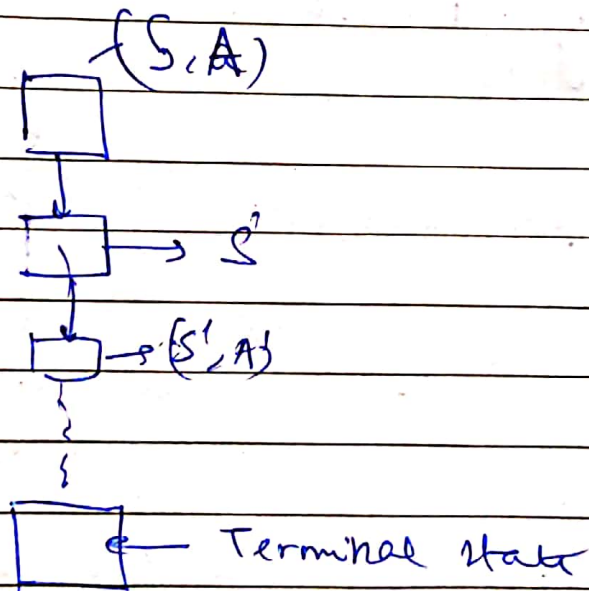 (S, A)
S'
(S', A')
Terminal state